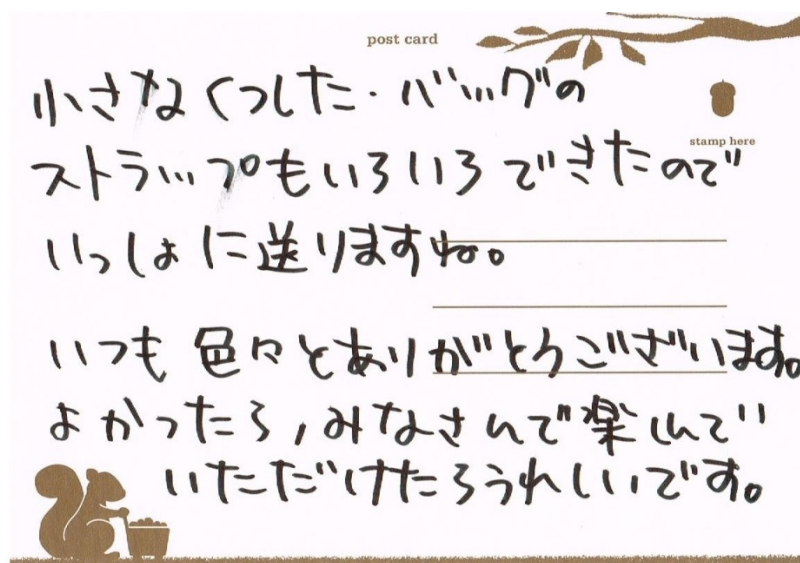 post card
小さなくつした・バッグの
stamp here
ストラップもいろいろできたので
いっしょに送りますね。
いつも色々とありがとうございます。
よかったら,みなさんで楽しんで
いただけたらうれしいです。